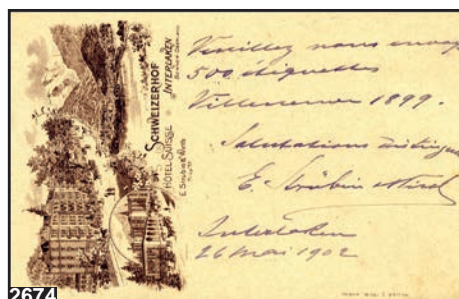 SCHWEIZERHOF
HÔTEL SUISSE
INTERLAKEN
Veuillez nous envoy
500 étiquettes
Villeneuve 1899.
Salutations distingu
E. Strübin &
Interlaken
26 Mai 1902
2674